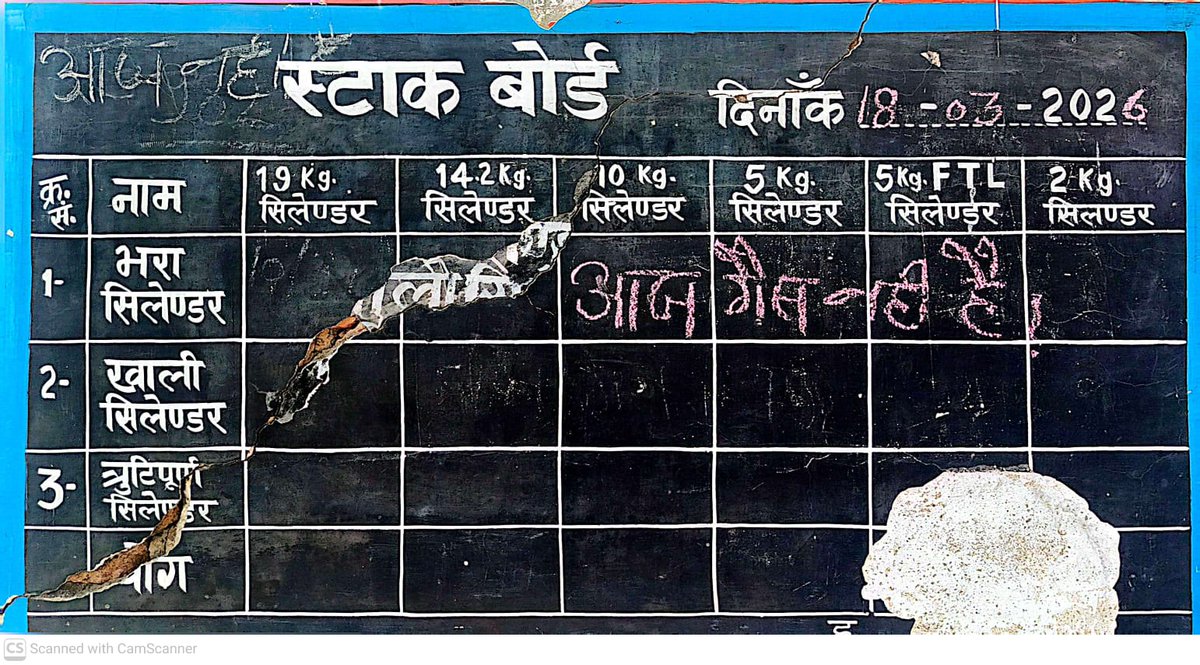 आज नहीं
स्टाक बोर्ड
दिनाँक 18-03-2026
क्र. सं. नाम 19 Kg. सिलेण्डर 14.2 Kg. सिलेण्डर 10 Kg. सिलेण्डर 5 Kg. सिलेण्डर 5 Kg. FTL सिलेण्डर 2 Kg. सिलण्डर
1- भरा सिलेण्डर आज गैस नही है।
2- खाली सिलेण्डर
3- त्रुटिपूर्ण सिलेण्डर
योग
CS Scanned with CamScanner